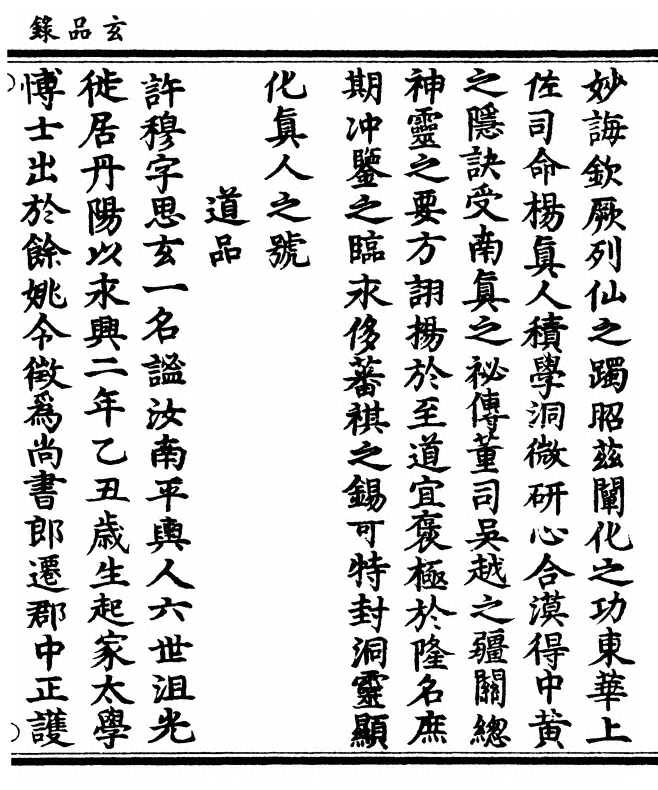 玄品錄
妙誨欽厥列仙之躅昭茲闡化之功東華上
佐司命楊眞人積學洞微研心合漠得中黃
之隱訣受南眞之祕傳董司吳越之疆關總
神靈之要方詡揚於至道宜褒極於隆名庶
期沖鑒之臨永侈蕃祺之錫可特封洞靈顯
化眞人之號
道品
許穆字思玄一名謐汝南平輿人六世沮光
徙居丹陽以永興二年乙丑歲生起家太學
博士出於餘姚令徵爲尚書郎遷郡中正護